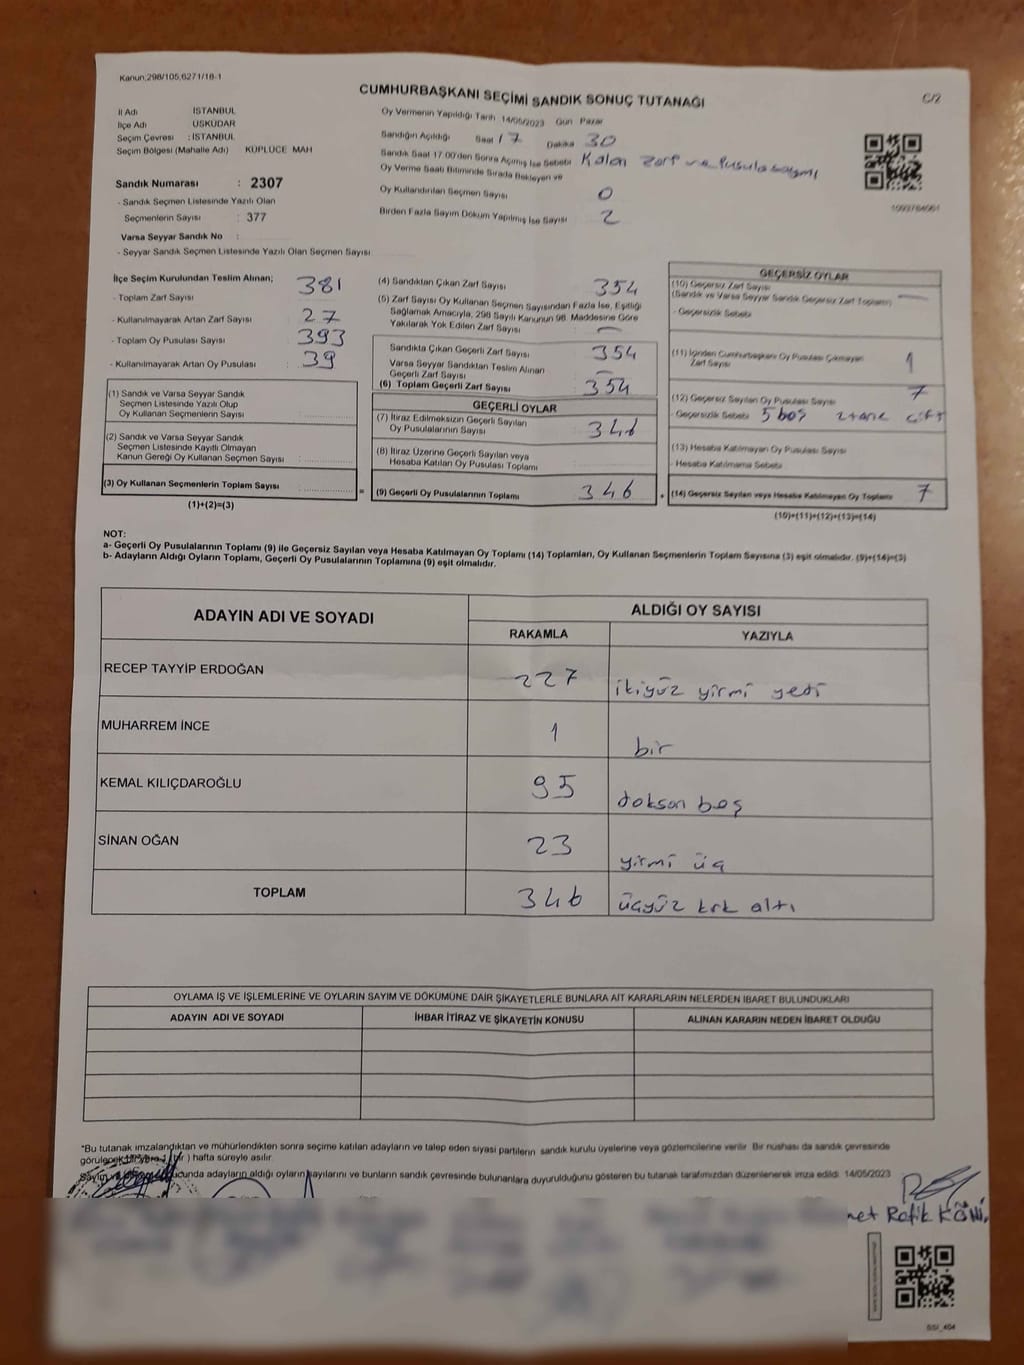 Kanun;298/105,6271/18-1
CUMHURBAŞKANI SEÇİMİ SANDIK SONUÇ TUTANAĞI
C/2
İl Adı İSTANBUL
İlçe Adı ÜSKÜDAR
Seçim Çevresi : İSTANBUL
Seçim Bölgesi (Mahalle Adı) KÜPLÜCE MAH
Sandık Numarası : 2307
- Sandık Seçmen Listesinde Yazılı Olan
Seçmenlerin Sayısı : 377
Varsa Seyyar Sandık No :
- Seyyar Sandık Seçmen Listesinde Yazılı Olan Seçmen Sayısı
Oy Vermenin Yapıldığı Tarih 14/05/2023 Gün Pazar
Sandığın Açıldığı Saat 17 Dakika 30
Sandık Saat 17:00'den Sonra Açılmış İse Sebebi Kalan Zarf ve Pusula sayımı
Oy Verme Saati Bitiminde Sırada Bekleyen ve
Oy Kullandırılan Seçmen Sayısı 0
Birden Fazla Sayım Döküm Yapılmış İse Sayısı 2
İlçe Seçim Kurulundan Teslim Alınan;
- Toplam Zarf Sayısı : 381
- Kullanılmayarak Artan Zarf Sayısı : 27
- Toplam Oy Pusulası Sayısı : 393
- Kullanılmayarak Artan Oy Pusulası : 39
(1) Sandık ve Varsa Seyyar Sandık
Seçmen Listesinde Yazılı Olup
Oy Kullanan Seçmenlerin Sayısı :
(2) Sandık ve Varsa Seyyar Sandık
Seçmen Listesinde Kayıtlı Olmayan
Kanun Gereği Oy Kullanan Seçmen Sayısı :
(3) Oy Kullanan Seçmenlerin Toplam Sayısı :
(1)+(2)=(3)
(4) Sandıktan Çıkan Zarf Sayısı 354
(5) Zarf Sayısı Oy Kullanan Seçmen Sayısından Fazla İse, Eşitliği
Sağlamak Amacıyla, 298 Sayılı Kanunun 98. Maddesine Göre
Yakılarak Yok Edilen Zarf Sayısı : —
Sandıkta Çıkan Geçerli Zarf Sayısı 354
Varsa Seyyar Sandıktan Teslim Alınan
Geçerli Zarf Sayısı : —
(6) Toplam Geçerli Zarf Sayısı : 354
GEÇERLİ OYLAR
(7) İtiraz Edilmeksizin Geçerli Sayılan
Oy Pusulalarının Sayısı : 346
(8) İtiraz Üzerine Geçerli Sayılan veya
Hesaba Katılan Oy Pusulası Toplamı
= (9) Geçerli Oy Pusulalarının Toplamı 346
GEÇERSİZ OYLAR
(10) Geçersiz Zarf Sayısı
(Sandık ve Varsa Seyyar Sandık Geçersiz Zarf Toplamı) —
- Geçersizlik Sebebi
(11) İçinden Cumhurbaşkanı Oy Pusulası Çıkmayan
Zarf Sayısı 1
(12) Geçersiz Sayılan Oy Pusulası Sayısı 7
- Geçersizlik Sebebi 5 boş 2 tane çift
(13) Hesaba Katılmayan Oy Pusulası Sayısı
- Hesaba Katılmama Sebebi
+ (14) Geçersiz Sayılan veya Hesaba Katılmayan Oy Toplamı 7
(10)+(11)+(12)+(13)=(14)
NOT:
a- Geçerli Oy Pusulalarının Toplamı (9) ile Geçersiz Sayılan veya Hesaba Katılmayan Oy Toplamı (14) Toplamları, Oy Kullanan Seçmenlerin Toplam Sayısına (3) eşit olmalıdır. (9)+(14)=(3)
b- Adayların Aldığı Oyların Toplamı, Geçerli Oy Pusulalarının Toplamına (9) eşit olmalıdır.
ADAYIN ADI VE SOYADI ALDIĞI OY SAYISI
RAKAMLA YAZIYLA
RECEP TAYYİP ERDOĞAN 227 ikiyüz yirmi yedi
MUHARREM İNCE 1 bir
KEMAL KILIÇDAROĞLU 95 doksan beş
SİNAN OĞAN 23 yirmi üç
TOPLAM 346 üçyüz kırk altı
OYLAMA İŞ VE İŞLEMLERİNE VE OYLARIN SAYIM VE DÖKÜMÜNE DAİR ŞİKAYETLERLE BUNLARA AİT KARARLARIN NELERDEN İBARET BULUNDUKLARI
ADAYIN ADI VE SOYADI İHBAR İTİRAZ VE ŞİKAYETİN KONUSU ALINAN KARARIN NEDEN İBARET OLDUĞU
*Bu tutanak imzalandıktan ve mühürlendikten sonra seçime katılan adayların ve talep eden siyasi partilerin sandık kurulu üyelerine veya gözlemcilerine verilir. Bir nüshası da sandık çevresinde
hafta süreyle asılır.
adayların aldığı oyların sayılarını ve bunların sandık çevresinde bulunanlara duyurulduğunu gösteren bu tutanak tarafımızdan düzenlenerek imza edildi. 14/05/2023
Refik
SSI_404